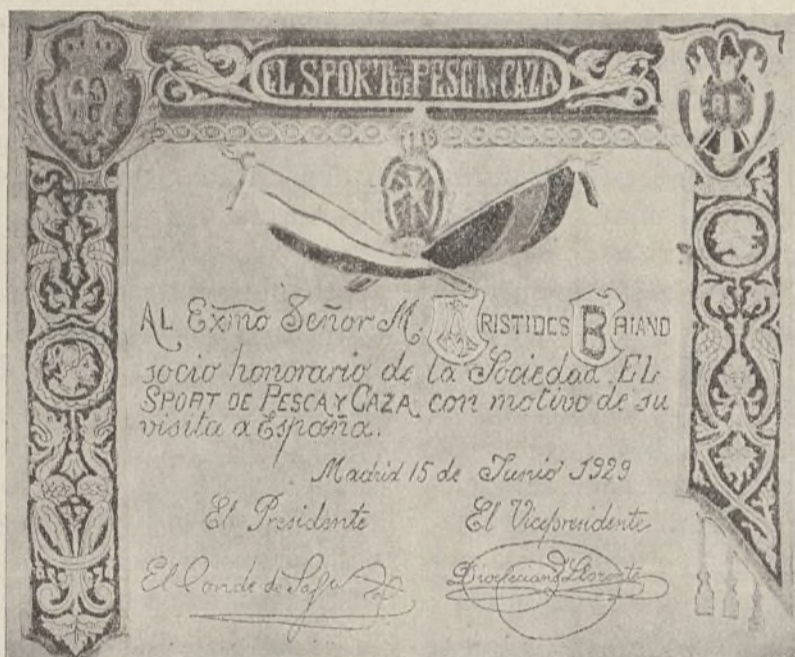 EL SPORT DE PESCA Y CAZA
AL Exmo Señor M. ARISTIDES BRIAND
socio honorario de la Sociedad EL
SPORT DE PESCA Y CAZA con motivo de su
visita a España.
Madrid 15 de Junio 1929
El Presidente El Vicepresidente
El Conde de
Llorente